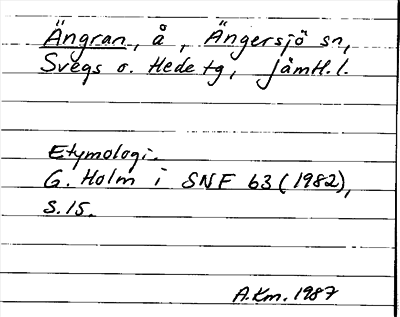 Ängran, å, Ängersjö sn,
Svegs o. Hede tg, Jämtl. l.
Etymologi.
G. Holm i SNF 63 (1982),
s. 15.
A.Km. 1987